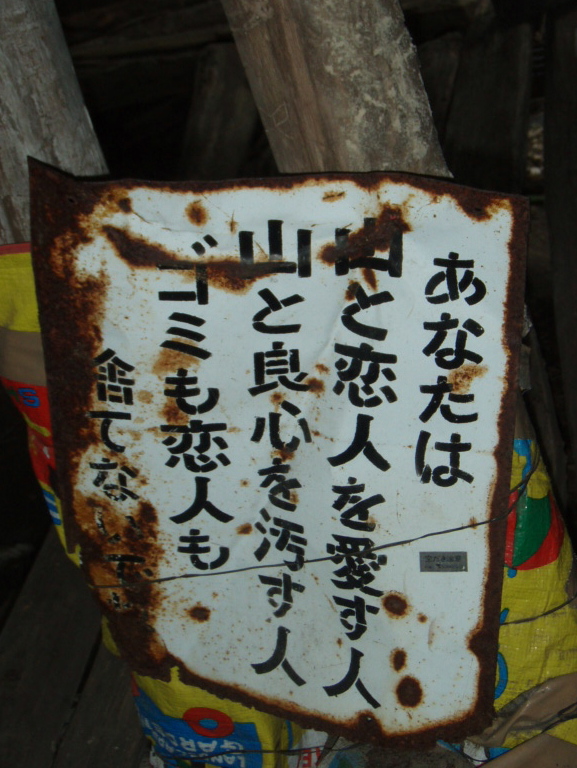 あなたは
山と恋人を愛す人
山と良心を汚す人
ゴミも恋人も
捨てない